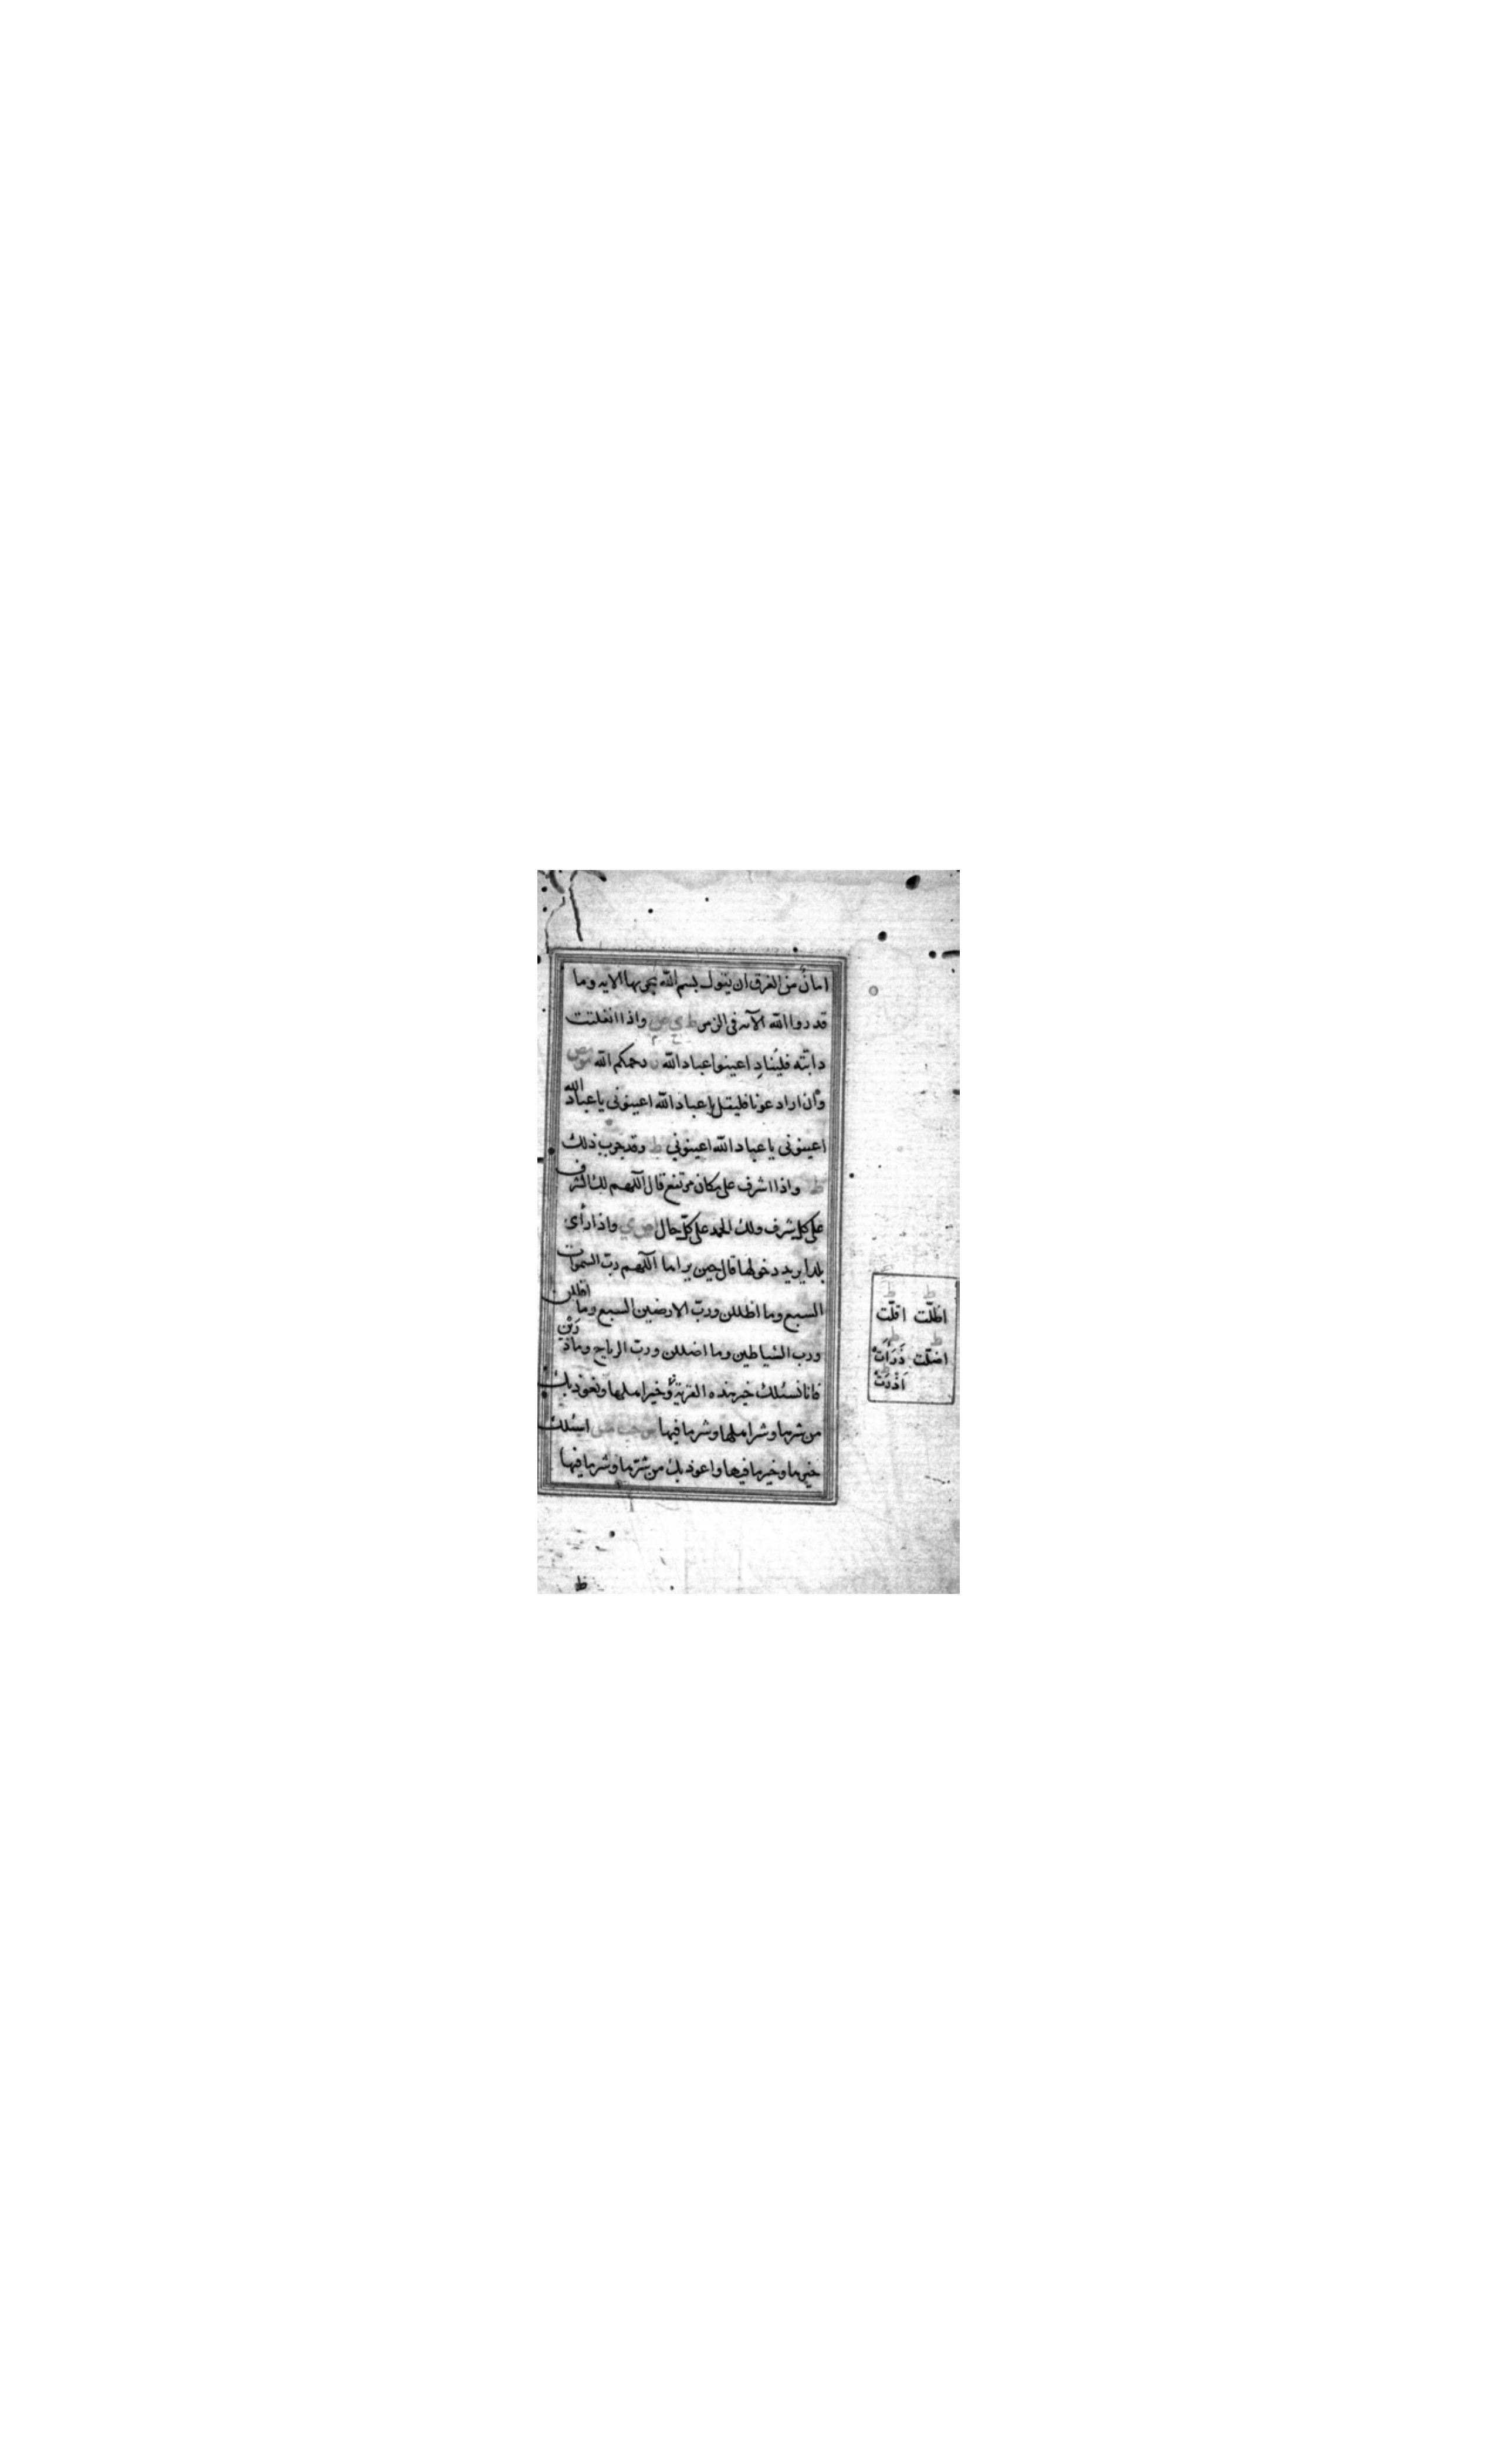 امانٌ من الغرق ان يقول بسم الله مجريها الاية وما
قدروا الله الآية فى الزمر ط ي ص واذا انفلتت
دابّته فليُنادِ اعينوا عباد الله رحمكم الله مو مص
وان اراد عونا فليقل يا عباد الله اعينونى يا عباد الله
اعينونى يا عباد الله اعينونى ط وقد جرب ذلك
ط واذا اشرف على مكان مرتفع قال اللّهم لك الشرف
على كل شرف ولك الحمد على كلّ حال ا ص ي واذا رأى
بلدا يريد دخولها قال حين يراها اللّهم ربّ السموات
السبع وما اظللن وربّ الارضين السبع وما اقللن
ورب الشياطين وما اضللن وربّ الرياح وما ذَرَيْنَ
فانا نسئلك خير هذه القرية وخير اهلها ونعوذ بك
من شرها وشر اهلها وشر ما فيها س حب مس اسئلك
خيرها وخير ما فيها واعوذ بك من شرّها وشر ما فيها
اظلّت اقلّت
اضلّت ذَرَاتْ
اَذْرَتْ
ط